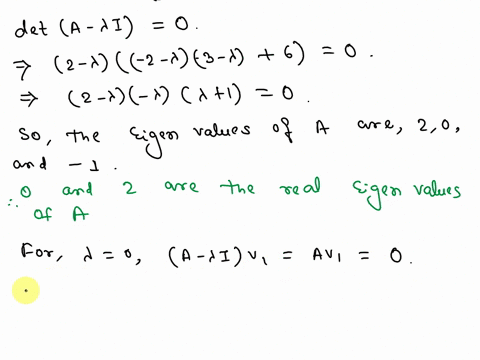 det (A-λI) = 0.
⇒ (2-λ)((-2-λ)(3-λ) + 6) = 0.
⇒ (2-λ)(-λ) (λ+1) = 0.
So, the Eigen values of A are, 2,0,
and -1.
∴ 0 and 2 are the real Eigen values
of A
For, λ=0, (A-λI)v₁ = Av₁ = 0.